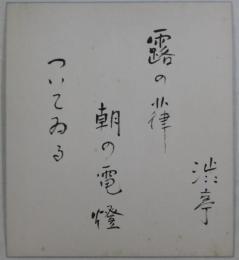 露の葎
朝の電燈
ついてゐる
澁亭